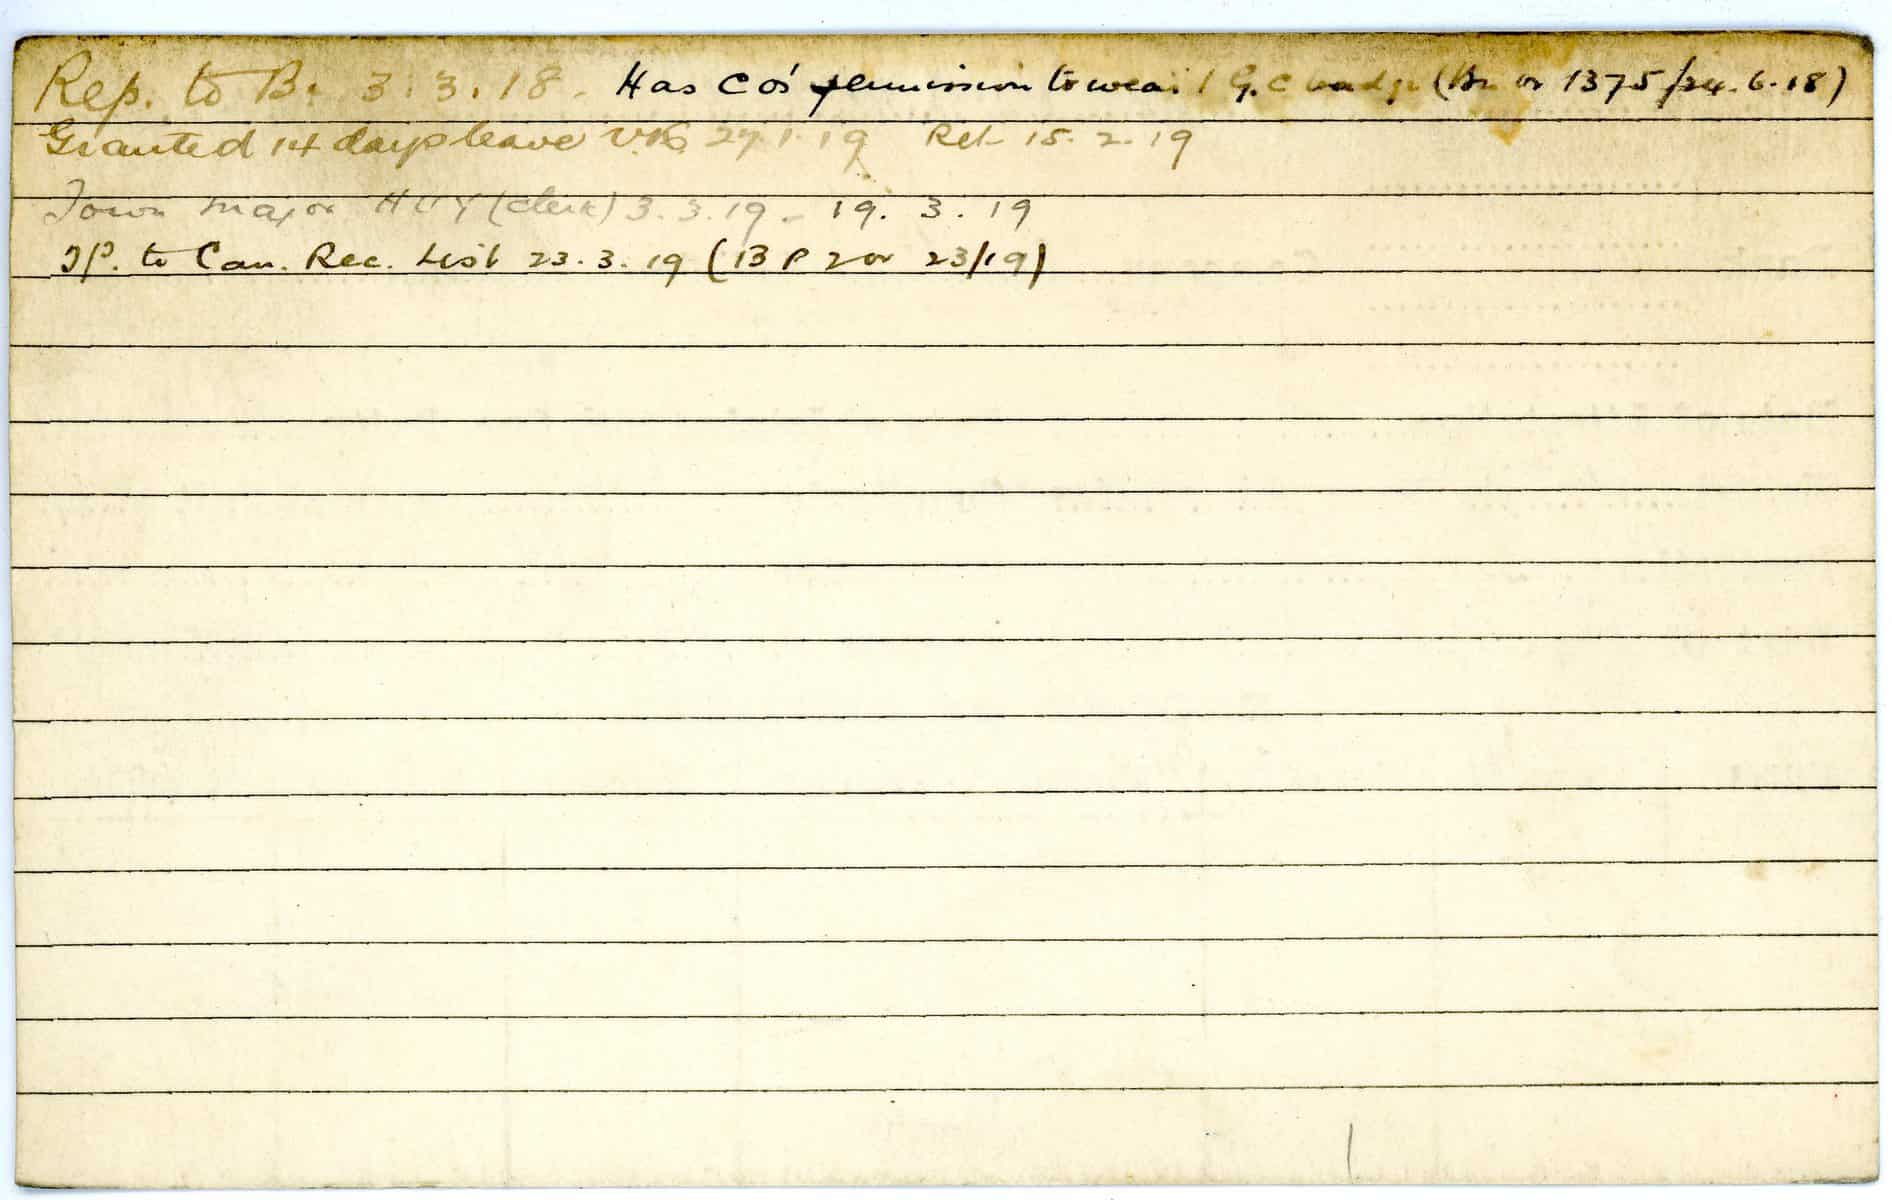 Rep. to Bn 3.3.18. Has C os' permission to wear 1 G.C badge (Bn or 1375/24.6.18)
Granted 14 days leave V.K. 27.1.19 Ret 15.2.19
Town Major HUY (Clerk) 3.3.19 - 19.3.19
TP. to Can. Rec. List 23.3.19 (13 P 2 or 23/19)